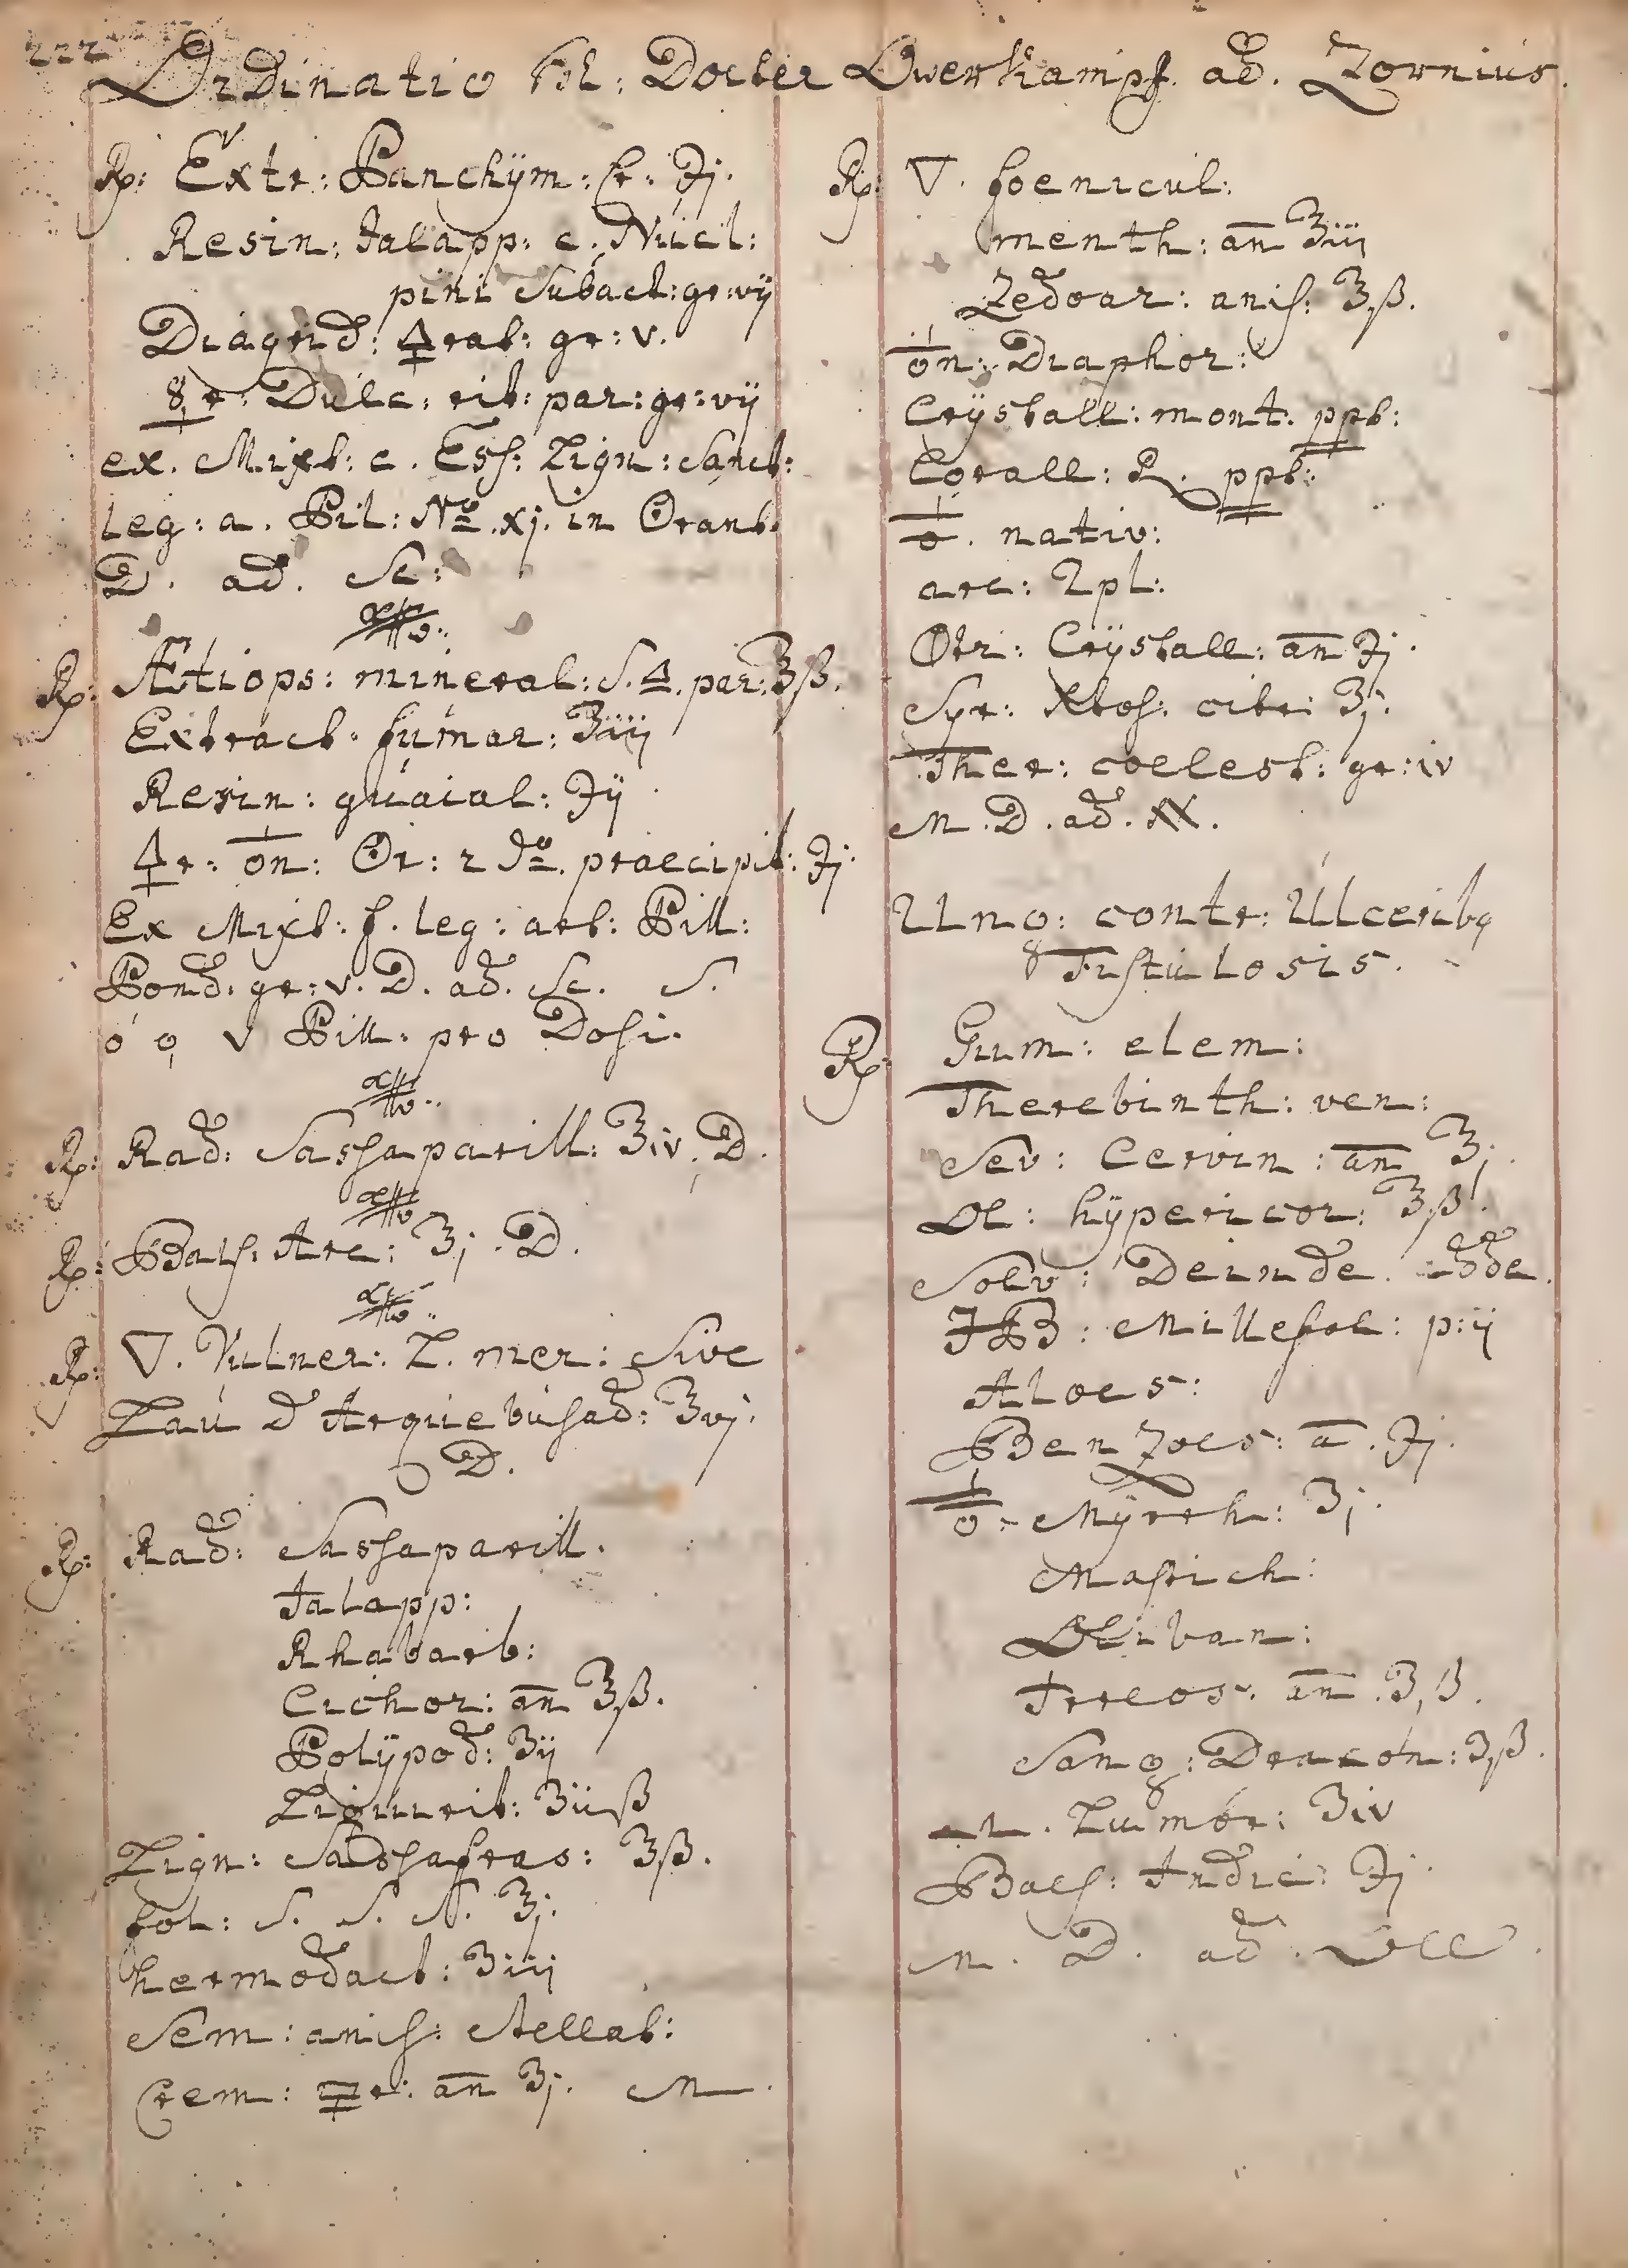 222
Ordinatio Hl: Docter Overkampf. ad. Zornius.
Rp: Extr: Panchÿm: Cr: ℈j.
Resin: Jalapp: c. Nucl:
pini Subact: gr: vij
Diagrid: 🜍rat: gr: v.
☿r: Dulc: rit: par: gr: vij
ex. Mixt: c. Ess: Lign: Sanct:
leg: a. Pil: No. xj. in Orant.
D. ad. Sc:
Rp: Ætiops: mineral: S. 🜂. par: ʒß.
Extract: fumar: ʒiij
Resin: guaial: ℈ij
🜍r: ♁n: Or: 2do. praecipit: ℈j.
Ex Mixt: f. leg: art: Pill:
Pond. gr: v. D. ad. Sc. S.
V Pill. pro Dosi.
Rp: Rad: Sassaparill: ʒiv. D.
Rp: Bals: Arc: ʒj. D.
Rp: ▽. Vulner: L. mer: Sive
Lau d Arquebusad: ʒvj.
D.
Rp: Rad: Sassaparill.
Jalapp:
Rhabarb:
Cichor: an ʒß.
Polÿpod: ʒij
Liquirit: ʒiiß
Lign: Sassafras: ʒß.
fol: S. S. N. ʒj.
hermodact: ʒiij
Sem: anis: stellat:
Crem: 🜿r: an ʒj. M.
Rp: ▽. foenicul:
menth: an ʒiij
Zedoar: anis: ʒß.
♁n: Diaphor:
Crÿstall: mont. ppt:
Corall: R. ppt:
♁. nativ:
arc: 2pl:
Otri: Crÿstall: an ℈j.
Syr: Xtos: citr: ʒj.
Ther: coelest: gr: iv
M. D. ad. XX.
Ung: contr: Ulceribq
Fistulosis.
Rp: Gum: elem:
Therebinth: ven:
Sev: Cervin: an ʒj.
Ol: hÿpericor: ʒß.
Solv: Deinde. adde.
HB: Millefol: p: ij
Aloes:
Benzoes: a. ℈j.
Mÿrrh: ʒj.
Mastich:
Oliban:
Jreos: an. ʒß.
Sang: Dracon: ʒß.
Lumbr: ʒiv
Bals: Indic: ℈j
M. D. ad. Oll.